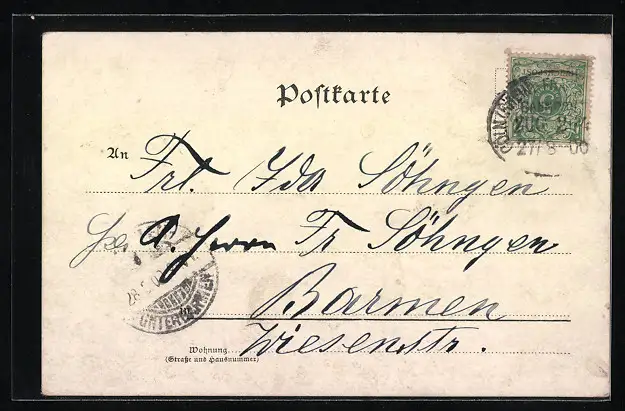 Postkarte
An Frl. Ida Söhngen
p. A. Herrn Fr Söhngen
Barmen
in
Wiesenstr.
Wohnung
(Straße und Hausnummer)
ZUG
27/8 00
28.
UNTERBARMEN